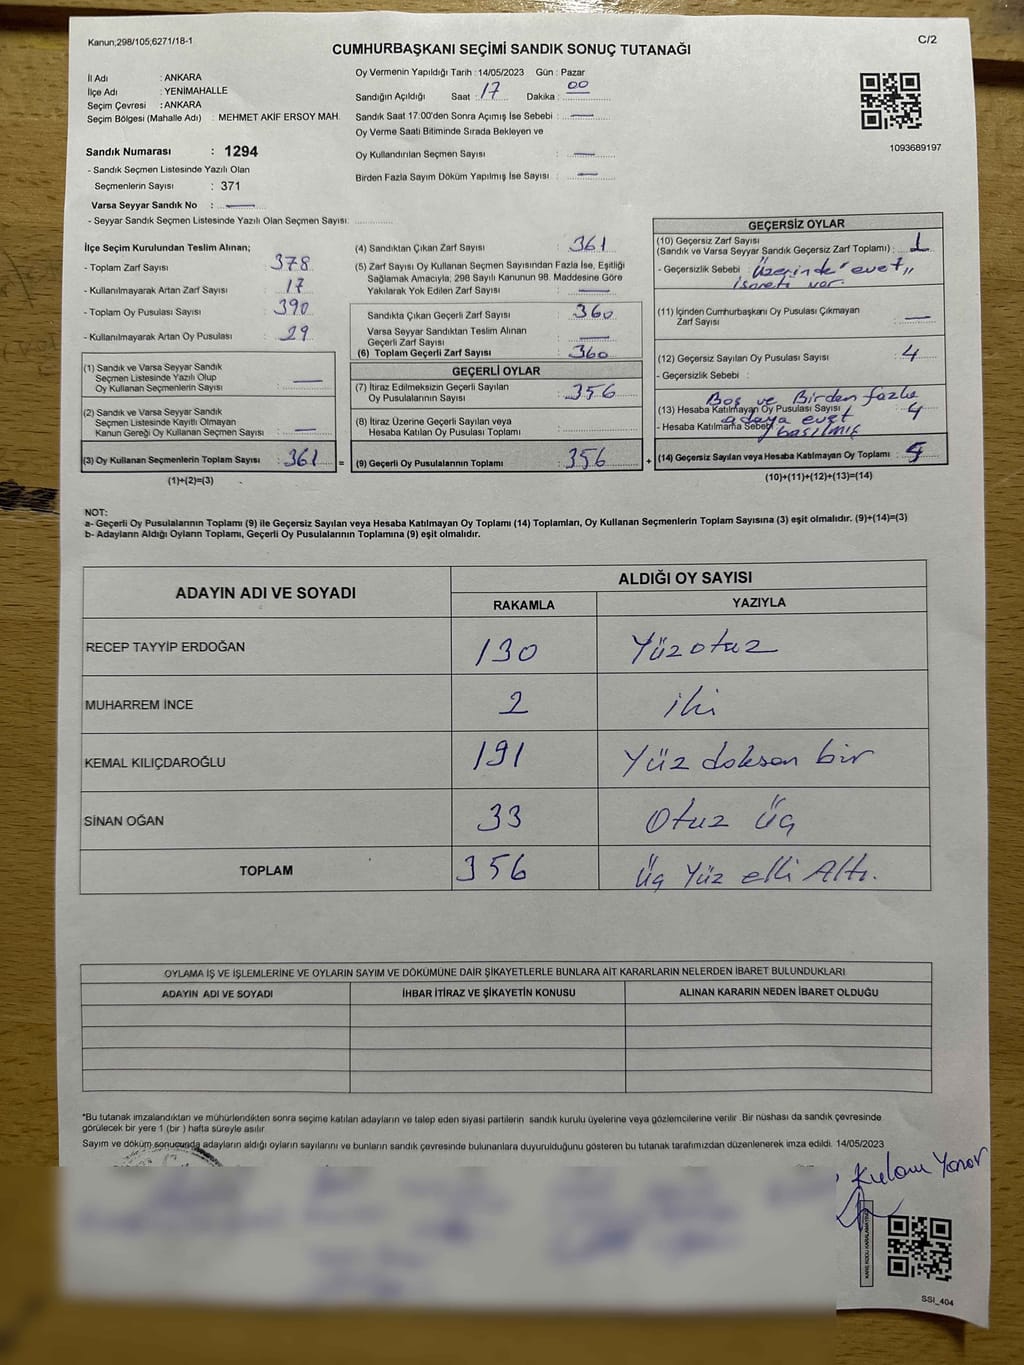 Kanun;298/105;6271/18-1
C/2
CUMHURBAŞKANI SEÇİMİ SANDIK SONUÇ TUTANAĞI
İl Adı : ANKARA
İlçe Adı : YENİMAHALLE
Seçim Çevresi : ANKARA
Seçim Bölgesi (Mahalle Adı) : MEHMET AKİF ERSOY MAH.
Sandık Numarası : 1294
- Sandık Seçmen Listesinde Yazılı Olan
Seçmenlerin Sayısı : 371
Varsa Seyyar Sandık No : —
- Seyyar Sandık Seçmen Listesinde Yazılı Olan Seçmen Sayısı: ............
Oy Vermenin Yapıldığı Tarih : 14/05/2023 Gün : Pazar
Sandığın Açıldığı Saat : 17 Dakika : 00
Sandık Saat 17:00'den Sonra Açımış İse Sebebi : —
Oy Verme Saati Bitiminde Sırada Bekleyen ve
Oy Kullandırılan Seçmen Sayısı : —
Birden Fazla Sayım Döküm Yapılmış İse Sayısı : —
1093689197
İlçe Seçim Kurulundan Teslim Alınan;
- Toplam Zarf Sayısı : 378
- Kullanılmayarak Artan Zarf Sayısı : 17
- Toplam Oy Pusulası Sayısı : 390
- Kullanılmayarak Artan Oy Pusulası : 29
(1) Sandık ve Varsa Seyyar Sandık
Seçmen Listesinde Yazılı Olup
Oy Kullanan Seçmenlerin Sayısı : —
(2) Sandık ve Varsa Seyyar Sandık
Seçmen Listesinde Kayıtlı Olmayan
Kanun Gereği Oy Kullanan Seçmen Sayısı : —
(3) Oy Kullanan Seçmenlerin Toplam Sayısı : 361 =
(1)+(2)=(3)
(4) Sandıktan Çıkan Zarf Sayısı : 361
(5) Zarf Sayısı Oy Kullanan Seçmen Sayısından Fazla İse, Eşitliği
Sağlamak Amacıyla, 298 Sayılı Kanunun 98. Maddesine Göre
Yakılarak Yok Edilen Zarf Sayısı : —
Sandıkta Çıkan Geçerli Zarf Sayısı : 360
Varsa Seyyar Sandıktan Teslim Alınan
Geçerli Zarf Sayısı : —
(6) Toplam Geçerli Zarf Sayısı : 360
GEÇERLİ OYLAR
(7) İtiraz Edilmeksizin Geçerli Sayılan
Oy Pusulalarının Sayısı : 356
(8) İtiraz Üzerine Geçerli Sayılan veya
Hesaba Katılan Oy Pusulalarının Toplamı :
(9) Geçerli Oy Pusulalarının Toplamı : 356 +
GEÇERSİZ OYLAR
(10) Geçersiz Zarf Sayısı
(Sandık ve Varsa Seyyar Sandık Geçersiz Zarf Toplamı) : 1
- Geçersizlik Sebebi : Üzerinde "evet"
işareti var.
(11) İçinden Cumhurbaşkanı Oy Pusulası Çıkmayan
Zarf Sayısı : —
(12) Geçersiz Sayılan Oy Pusulası Sayısı : 4
- Geçersizlik Sebebi :
Boş ve Birden fazla
(13) Hesaba Katılmayan Oy Pusulası Sayısı : 4
adaya evet
- Hesaba Katılmama Sebebi
basılmış
(14) Geçersiz Sayılan veya Hesaba Katılmayan Oy Toplamı : 5
(10)+(11)+(12)+(13)=(14)
NOT:
a- Geçerli Oy Pusulalarının Toplamı (9) ile Geçersiz Sayılan veya Hesaba Katılmayan Oy Toplamı (14) Toplamları, Oy Kullanan Seçmenlerin Toplam Sayısına (3) eşit olmalıdır. (9)+(14)=(3)
b- Adayların Aldığı Oyların Toplamı, Geçerli Oy Pusulalarının Toplamına (9) eşit olmalıdır.
ADAYIN ADI VE SOYADI
ALDIĞI OY SAYISI
RAKAMLA YAZIYLA
RECEP TAYYİP ERDOĞAN 130 Yüzotuz
MUHARREM İNCE 2 iki
KEMAL KILIÇDAROĞLU 191 Yüz doksan bir
SİNAN OĞAN 33 Otuz üç
TOPLAM 356 Üç Yüz elli Altı.
OYLAMA İŞ VE İŞLEMLERİNE VE OYLARIN SAYIM VE DÖKÜMÜNE DAİR ŞİKAYETLERLE BUNLARA AİT KARARLARIN NELERDEN İBARET BULUNDUKLARI
ADAYIN ADI VE SOYADI İHBAR İTİRAZ VE ŞİKAYETİN KONUSU ALINAN KARARIN NEDEN İBARET OLDUĞU
*Bu tutanak imzalandıktan ve mühürlendikten sonra seçime katılan adayların ve talep eden siyasi partilerin sandık kurulu üyelerine veya gözlemcilerine verilir .Bir nüshası da sandık çevresinde
görülecek bir yere 1 (bir ) hafta süreyle asılır.
Sayım ve döküm sonucunda adayların aldığı oyların sayılarını ve bunların sandık çevresinde bulunanlara duyurulduğunu gösteren bu tutanak tarafımızdan düzenlenerek imza edildi. 14/05/2023
SSI_404